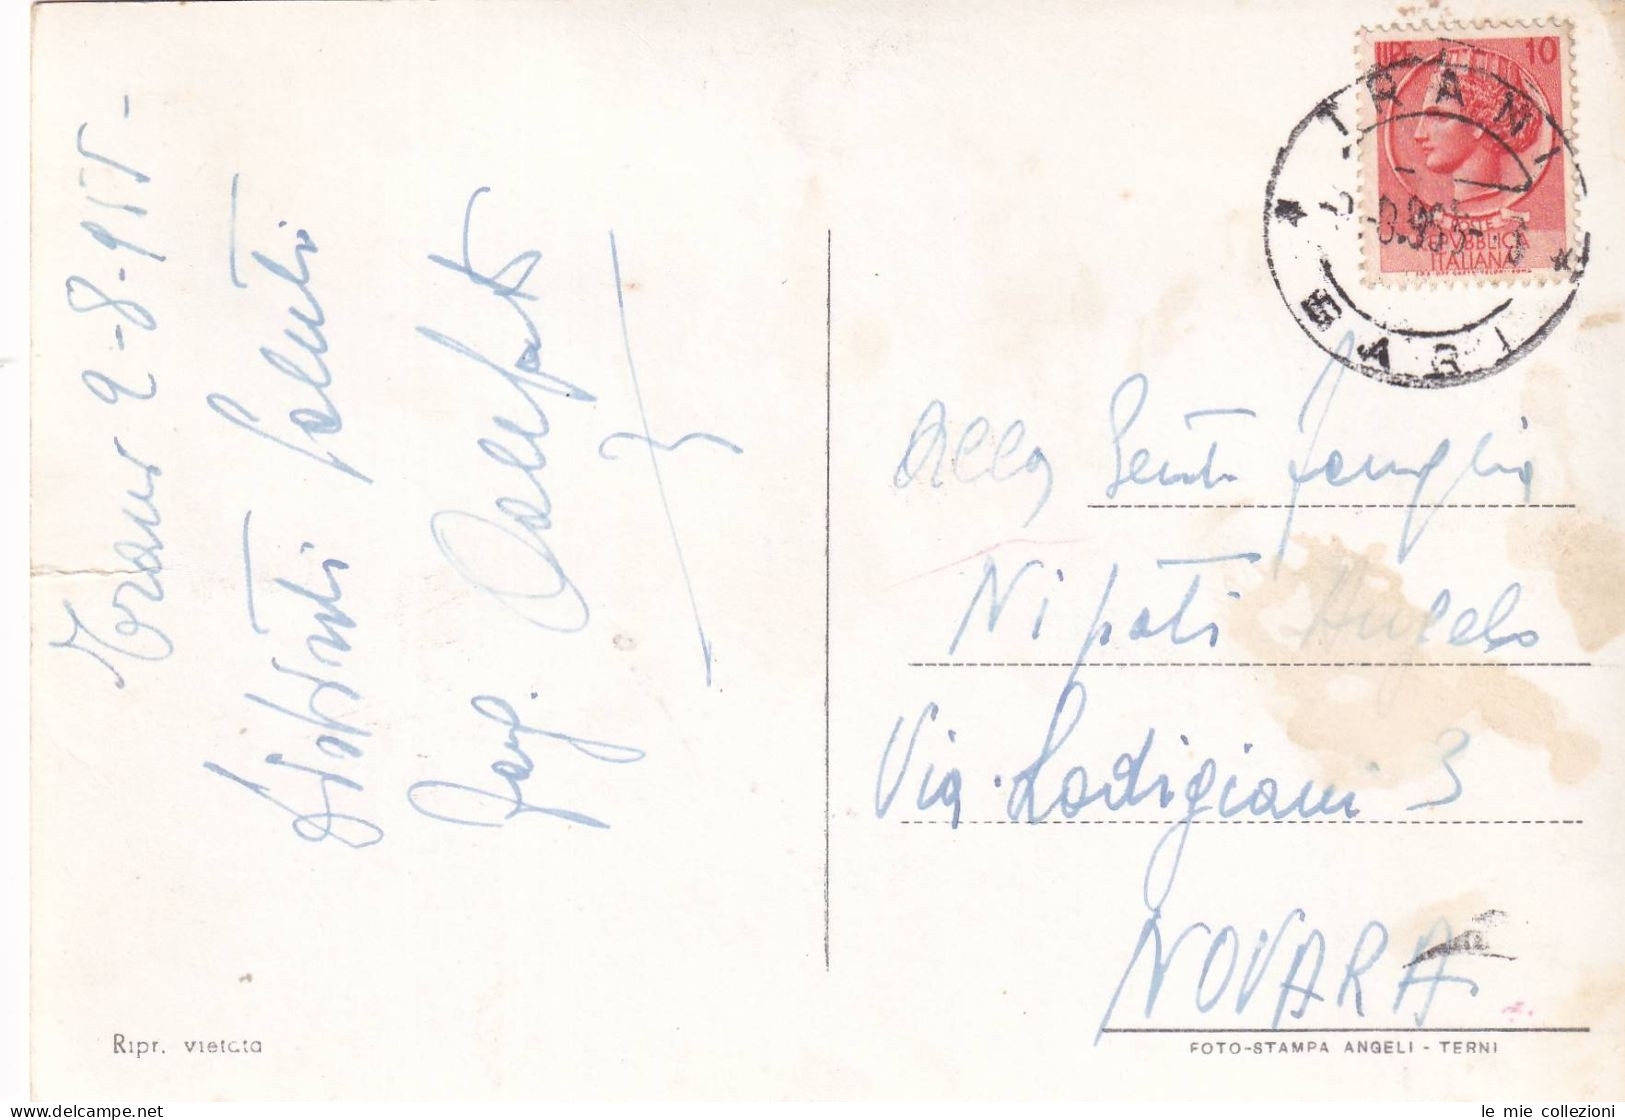 Trani 9-8-955-
Distinti saluti
Fam.
LIRE 10
POSTE
REPVBBLICA
ITALIANA
TRANI
BARI
Alla Gent. Famiglia
Nipoti Angelo
Via Lodigiani 3
NOVARA
Ripr. vietata
FOTO-STAMPA ANGELI - TERNI
le mie collezioni